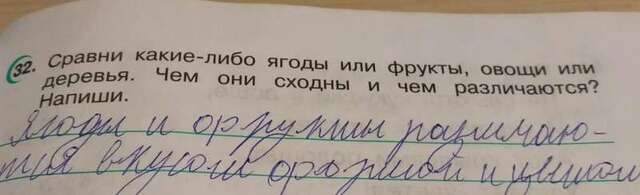 32. Сравни какие-либо ягоды или фрукты, овощи или
деревья. Чем они сходны и чем различаются?
Напиши.
Ягоды и фрукты различаю-
тся вкусом формой и цветом